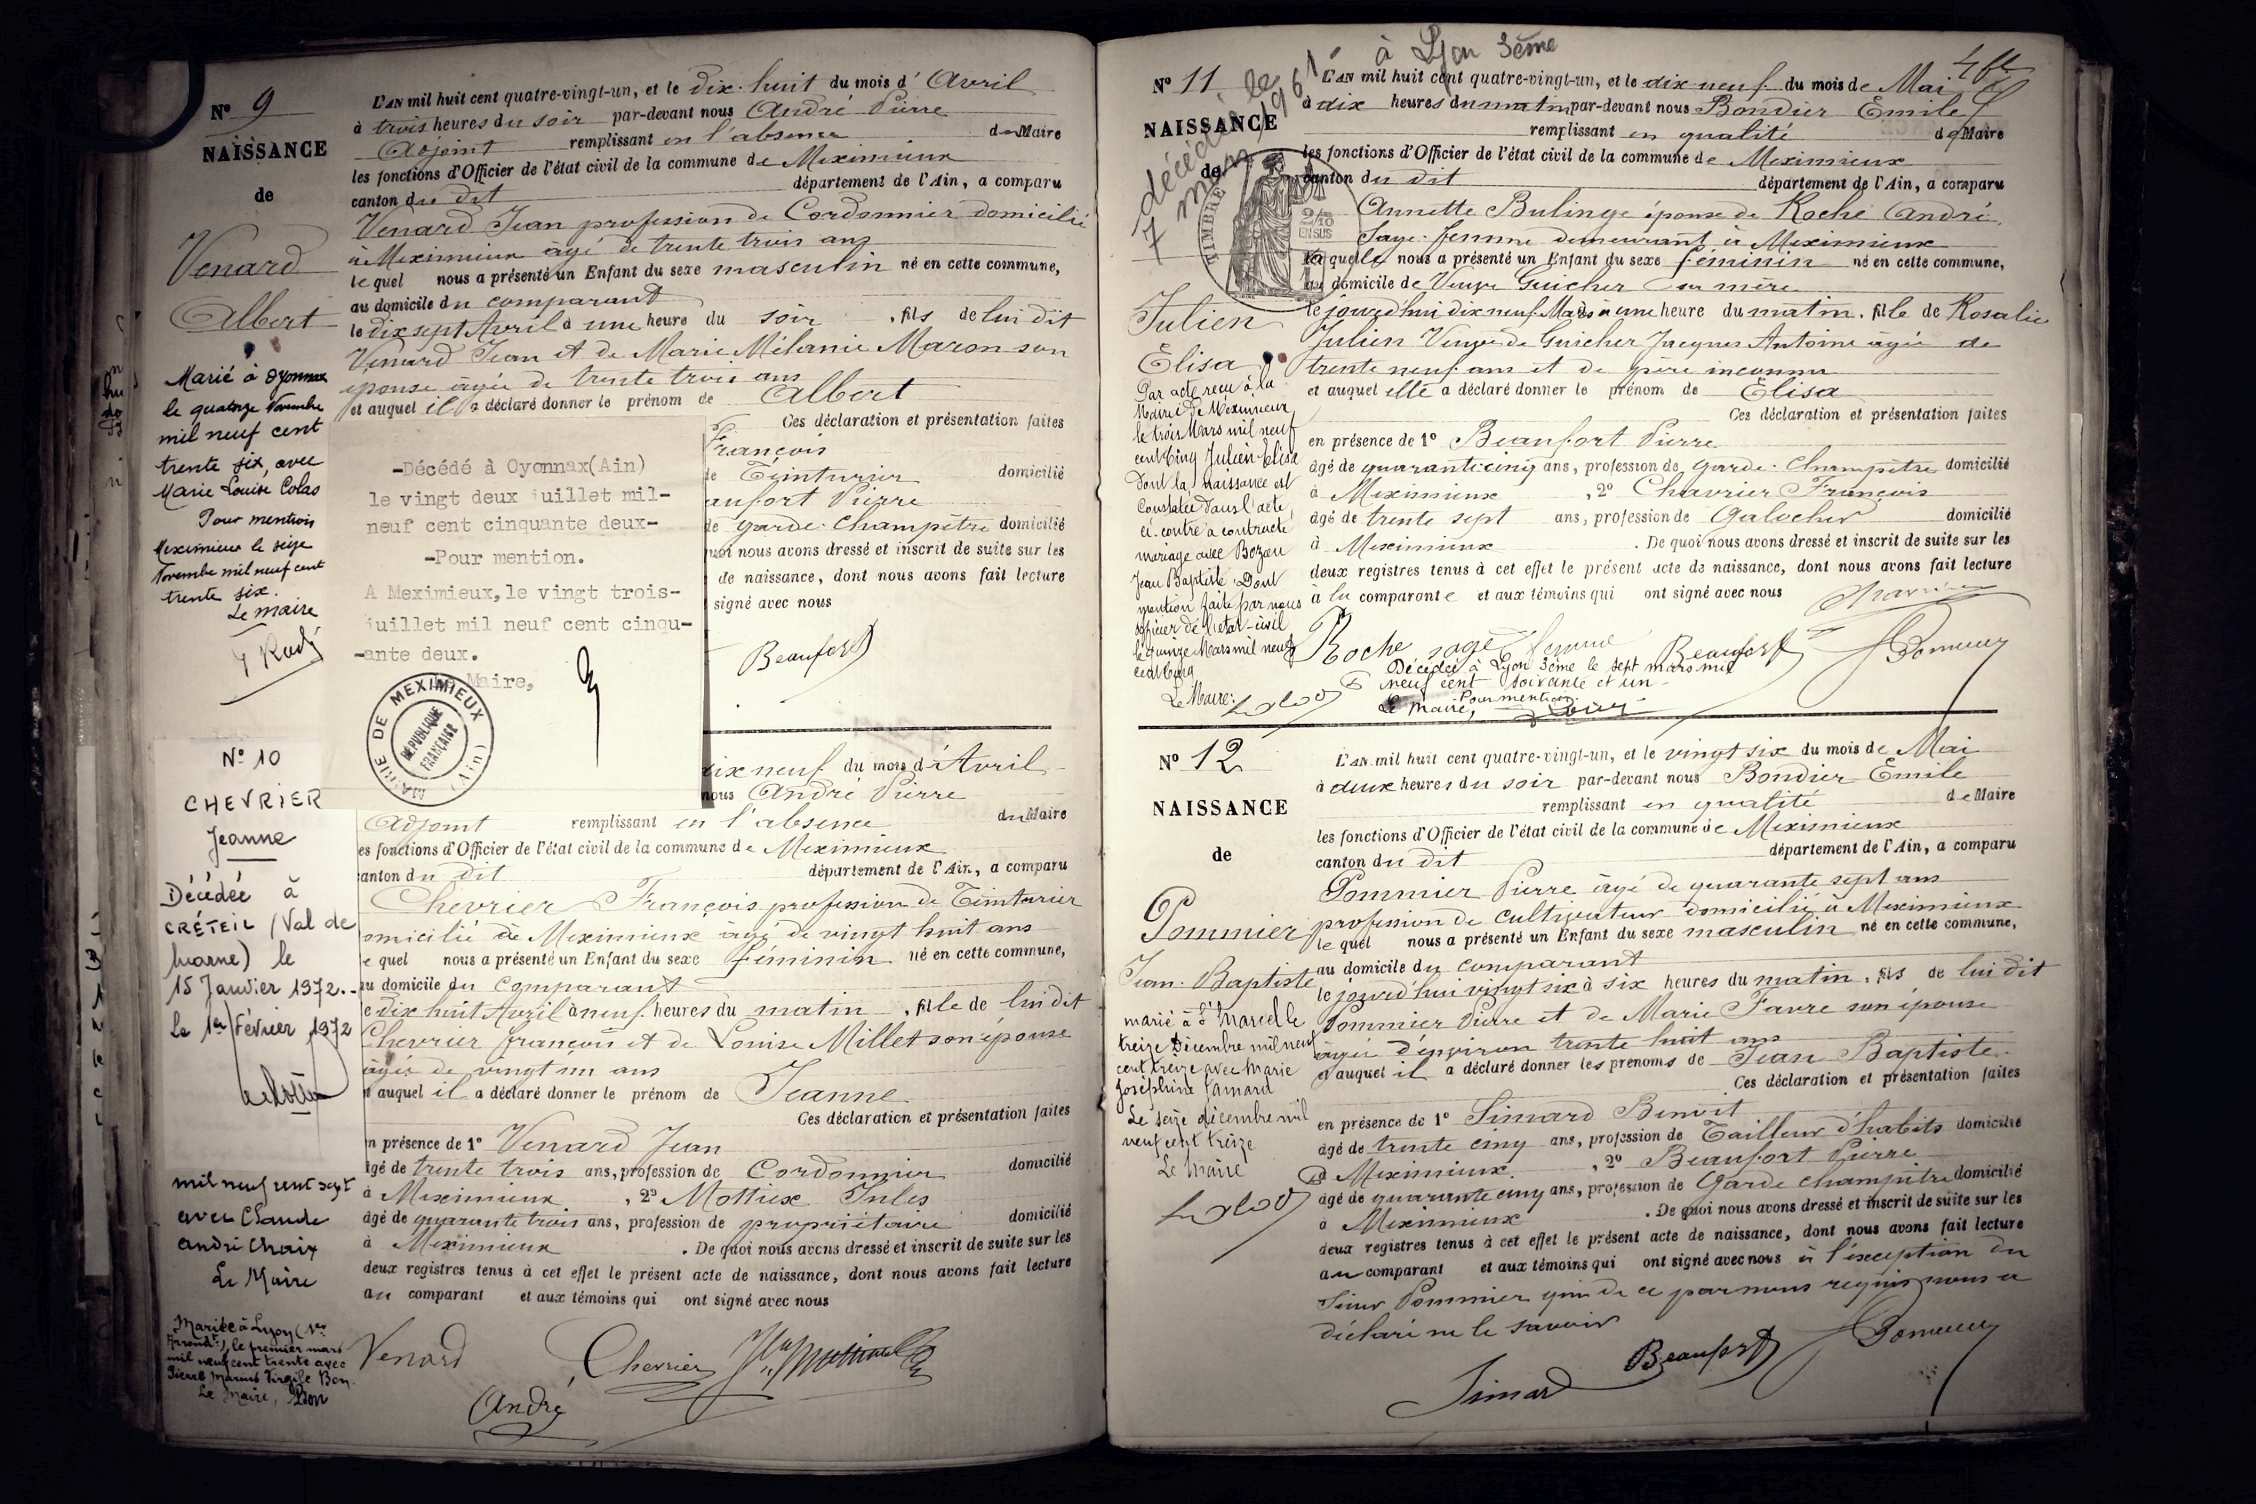 N° 9
NAISSANCE
de
Venard
Albert
Marié à Oyonnax
le quatorze Novembre
mil neuf cent
trente six, avec
Marie Louise Colas
Pour mention
Meximieux le seize
Novembre mil neuf cent
trente six.
Le maire
L'AN mil huit cent quatre-vingt-un, et le dix-huit du mois d'Avril
à trois heures du soir par-devant nous André Pierre
Adjoint remplissant en l'absence de Maire
les fonctions d'Officier de l'état civil de la commune de Meximieux
canton du dit département de l'Ain, a comparu
Venard Jean profession de Cordonnier domicilié
à Meximieux âgé de trente trois ans
le quel nous a présenté un Enfant du sexe masculin né en cette commune,
au domicile du comparant
le dix sept Avril à une heure du soir, fils de lui dit
Venard Jean et de Marie Mélanie Maron son
épouse âgée de trente trois ans
et auquel il a déclaré donner le prénom de Albert
Ces déclaration et présentation faites
François
de Teinturier domicilié
aufort Pierre
de garde-Champêtre domicilié
uoi nous avons dressé et inscrit de suite sur les
de naissance, dont nous avons fait lecture
signé avec nous
Beaufort
-Décédé à Oyonnax(Ain)
le vingt deux juillet mil-
neuf cent cinquante deux-
-Pour mention.
A Meximieux, le vingt trois-
juillet mil neuf cent cinqu-
-ante deux.
Le Maire,
MAIRIE DE MEXIMIEUX (Ain)
REPUBLIQUE
FRANÇAISE
N° 10
CHEVRIER
Jeanne
Décédée à
CRÉTEIL (Val de
Marne) le
15 Janvier 1972.-
Le 1er Février 1972
mil neuf cent sept
avec Claude
André Chaix
Le Maire
Mariée à Lyon (1er
Arrondt), le premier mars
mil neuf cent trente avec
Pierre Marius Virgile Bon
Le Maire, Bon
dix neuf du mois d'Avril
nous André Pierre
Adjoint remplissant en l'absence du Maire
es fonctions d'Officier de l'état civil de la commune de Meximieux
canton du dit département de l'Ain, a comparu
Chevrier François profession de Teinturier
omicilié à Meximieux âgé de vingt huit ans
e quel nous a présenté un Enfant du sexe féminin né en cette commune,
au domicile du comparant
e dix huit Avril à neuf heures du matin, fille de lui dit
Chevrier françois et de Louise Millet son épouse
âgée de vingt un ans
et auquel il a déclaré donner le prénom de Jeanne
Ces déclaration et présentation faites
en présence de 1° Venard Jean
âgé de trente trois ans, profession de Cordonnier domicilié
à Meximieux, 2° Mottiex Jules
âgé de quarante trois ans, profession de propriétaire domicilié
à Meximieux. De quoi nous avons dressé et inscrit de suite sur les
deux registres tenus à cet effet le présent acte de naissance, dont nous avons fait lecture
au comparant et aux témoins qui ont signé avec nous
Venard Chevrier
André
à Lyon 3ème
décédée le
7 mars 1961
N° 11
NAISSANCE
de
TIMBRE
2/10
EN SUS
Julien
Elisa
Par acte reçu à la
Mairie de Meximieux
le trois Mars mil neuf
cent cinq Julien Elisa
dont la naissance est
constatée dans l'acte
ci-contre a contracté
mariage avec Bozau
Jean Baptiste. Dont
mention faite par nous
officier de l'état-civil
le quinze Mars mil neuf
cent cinq
Le Maire:
L'AN mil huit cent quatre-vingt-un, et le dix neuf du mois de Mai
à dix heures du matin par-devant nous Bondier Emile
remplissant en qualité de Maire
les fonctions d'Officier de l'état civil de la commune de Meximieux
canton du dit département de l'Ain, a comparu
Annette Bulinge épouse de Roche André,
Sage-femme demeurant à Meximieux
la quelle nous a présenté un Enfant du sexe féminin né en cette commune,
au domicile de Veuve Guicher sa mère
le jourd'hui dix neuf Mai à une heure du matin, fille de Rosalie
Julien Veuve de Guicher Jacques Antoine âgée de
trente neuf ans et de père inconnu
et auquel elle a déclaré donner le prénom de Elisa
Ces déclaration et présentation faites
en présence de 1° Beaufort Pierre
âgé de quarante cinq ans, profession de garde-Champêtre domicilié
à Meximieux, 2° Chevrier François
âgé de trente sept ans, profession de Galocher domicilié
à Meximieux. De quoi nous avons dressé et inscrit de suite sur les
deux registres tenus à cet effet le présent acte de naissance, dont nous avons fait lecture
à la comparante et aux témoins qui ont signé avec nous
Roche sage femme Beaufort
Décédée à Lyon 3ème le sept mars mil
neuf cent soixante et un
Pour mention
Le Maire,
N° 12
NAISSANCE
de
Pommier
Jean-Baptiste
marié à St Marcel le
treize Décembre mil neuf
cent treize avec Marie
Joséphine Jamard
Le seize décembre mil
neuf cent treize
Le Maire
L'AN mil huit cent quatre-vingt-un, et le vingt six du mois de Mai
à deux heures du soir par-devant nous Bondier Emile
remplissant en qualité de Maire
les fonctions d'Officier de l'état civil de la commune de Meximieux
canton du dit département de l'Ain, a comparu
Pommier Pierre âgé de quarante sept ans
profession de cultivateur domicilié à Meximieux
le quel nous a présenté un Enfant du sexe masculin né en cette commune,
au domicile du comparant
le jourd'hui vingt six à six heures du matin, fils de lui dit
Pommier Pierre et de Marie Favre son épouse
âgée d'environ trente huit ans
et auquel il a déclaré donner les prénoms de Jean Baptiste
Ces déclaration et présentation faites
en présence de 1° Simard Benoit
âgé de trente cinq ans, profession de Tailleur d'habits domicilié
à Meximieux, 2° Beaufort Pierre
âgé de quarante cinq ans, profession de Garde champêtre domicilié
à Meximieux. De quoi nous avons dressé et inscrit de suite sur les
deux registres tenus à cet effet le présent acte de naissance, dont nous avons fait lecture
au comparant et aux témoins qui ont signé avec nous à l'exception du
sieur Pommier qui de ce par nous requis nous a
déclaré ne le savoir
Simard Beaufort